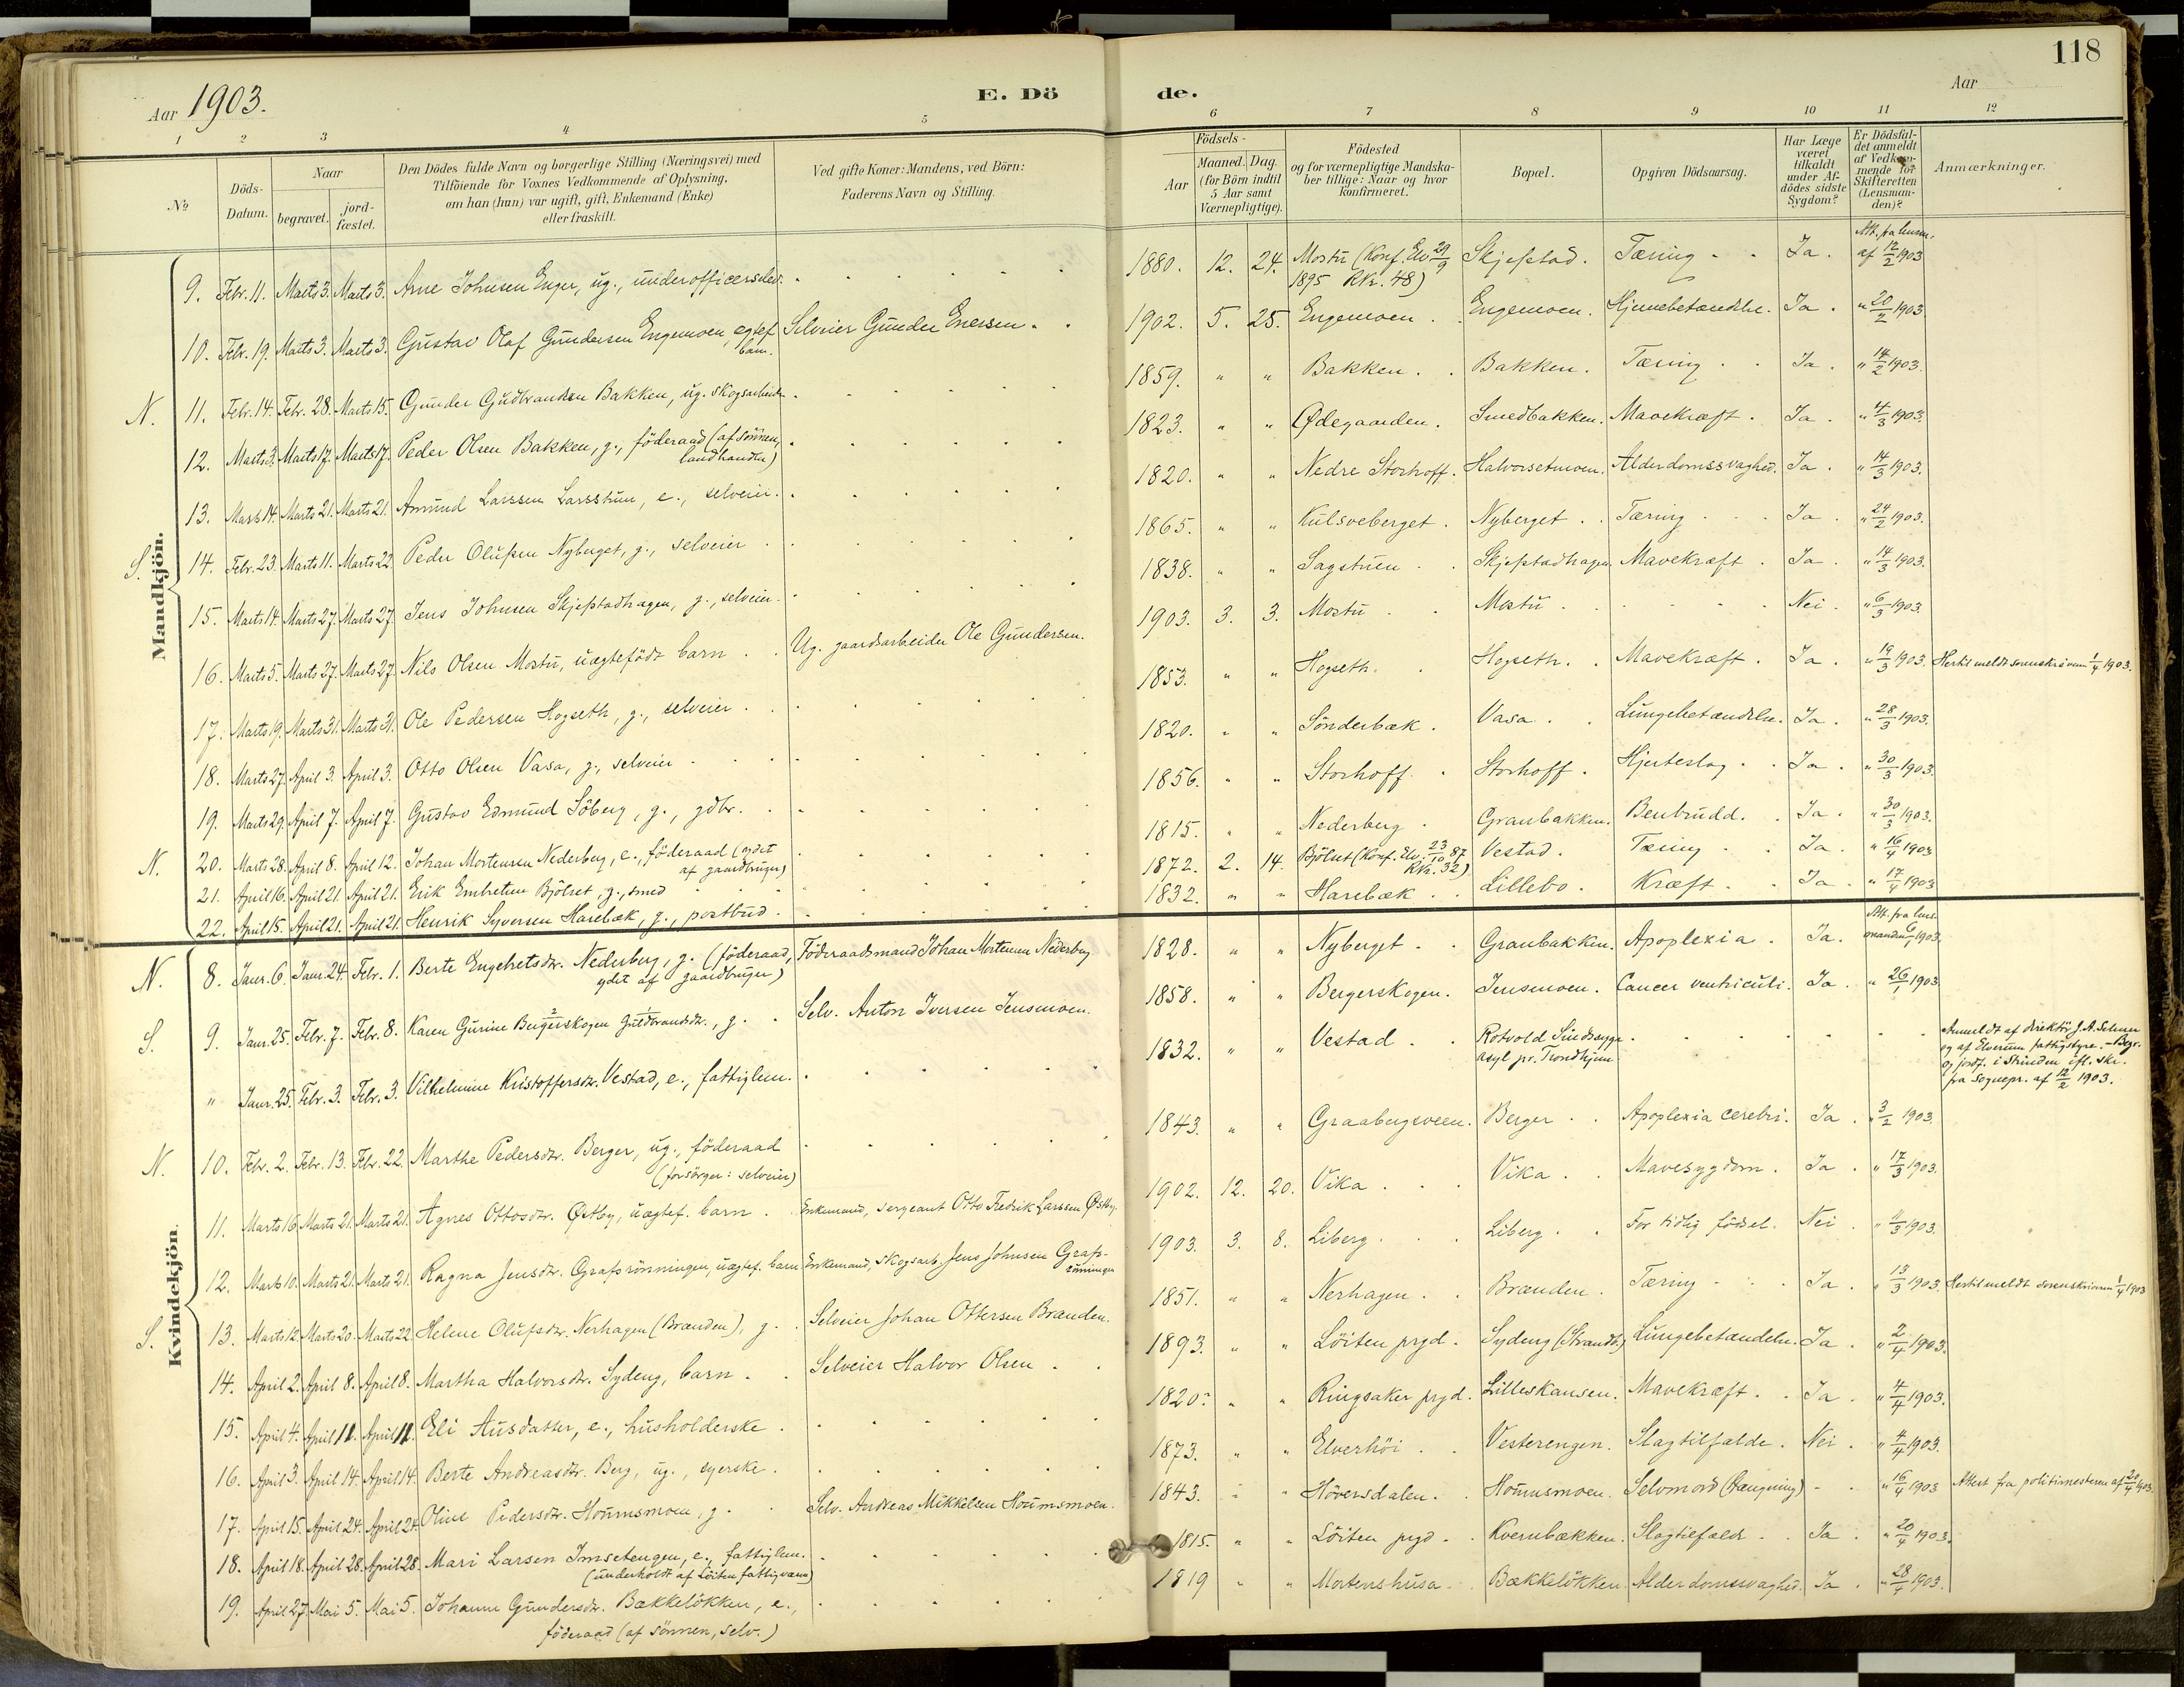 118
Aar 1903.
E. Döde.
Aar
1 2 3 4 5 6 7 8 9 10 11 12
No
Döds-Datum.
Naar
begravet.
jord-fæstet.
Den Dödes fulde Navn og borgerlige Stilling (Næringsvei) med
Tilföiende for Voxnes Vedkommende af Oplysning,
om han (hun) var ugift, gift, Enkemand (Enke)
eller fraskilt.
Ved gifte Koner: Mandens, ved Börn:
Faderens Navn og Stilling.
Födsels-
Aar
Maaned. Dag.
(for Börn indtil
5 Aar samt
Værnepligtige).
Födested
og for værnepligtige Mandska-
ber tillige: Naar og hvor
konfirmeret.
Bopæl.
Opgiven Dödsaarsag.
Har Læge
været
tilkaldt
under Af-
dödes sidste
Sygdom?
Er Dödsfal-
det anmeldt
af Vedkom-
mende for
Skifteretten
(Lensman-
den)?
Anmærkninger.
Mandkjön.
9. Febr. 11. Marts 3. Marts 3. Arne Johnsen Enger, ug., underofficerselev. 1880. 12. 24. Mostu (Konf. Elv 29/9 1895 RKr. 48) Skjefstad. Tæring Ja. Att. fra lensm. af 12/2 1903
10. Febr. 19. Marts 3. Marts 3. Gustav Olaf Gundersen Engemoen, egtef. barn. Selveier Gunder Enersen. 1902. 5. 25. Engemoen. Engemoen. Hjernebetændelse. Ja. " 20/2 1903
N. 11. Febr. 14. Febr. 28. Marts 15. Gunder Gudbrandsen Bakken, ug. skogsarbeider. 1859. " " Bakken. Bakken. Tæring Ja. " 14/2 1903.
12. Marts 3. Marts 17. Marts 17. Peder Olsen Bakken, g., föderaad (af sönnen, landhandler) 1823. " " Ødegaarden. Smedbakken. Mavekræft. Ja. " 4/3 1903.
13. Marts 14. Marts 21. Marts 21. Amund Larssen Larsstuen, e., selveier. 1820. " " Nedre Storhoff. Halvorsetmoen. Alderdomssvaghed. Ja. " 14/3 1903.
S. 14. Febr. 23. Marts 11. Marts 22. Peder Olufsen Nyberget, g., selveier 1865. " " Kulsveberget. Nyberget. Tæring Ja. " 24/2 1903.
15. Marts 14. Marts 27. Marts 27. Jens Johnsen Skjefstadhagen, g., selveier. 1838. " " Sagstuen Skjefstadhagen. Mavekræft. Ja. " 14/3 1903.
16. Marts 5. Marts 27. Marts 27. Nils Olsen Mostu, uægtefödt barn. Ug. gaardsarbeider Ole Gundersen. 1903. 3. 3. Mostu Mostu Nei. " 6/3 1903
17. Marts 19. Marts 31. Marts 31. Ole Pedersen Hogseth, g., selveier. 1853. " " Hogseth. Hogseth. Mavekræft. Ja. " 19/3 1903. Hertil meldt sorenskriveren 1/4 1903.
18. Marts 27. April 3. April 3. Otto Olsen Vasa, g., selveier 1820. " " Sönderbæk. Vasa. Lungebetændelse. Ja. " 28/3 1903.
19. Marts 29. April 7. April 7. Gustav Edmund Söberg, g., gdbr. 1856. " " Storhoff. Storhoff. Hjerteslag. Ja. " 30/3 1903.
N. 20. Marts 28. April 8. April 12. Johan Mortensen Nederberg, e., föderaad (ydet af gaardbruger) 1815. " " Nederberg. Granbakken. Benbrudd. Ja. " 30/3 1903.
21. April 16. April 21. April 21. Erik Embretsen Bjölset, g., smed 1872. 2. 14. Bjölset (Konf. Elv. 23/10 87 RKr. 32) Vestad. Tæring Ja. " 16/4 1903
22. April 15. April 21. April 21. Henrik Syversen Harebæk, g., postbud. 1832. " " Harebæk Lillebo. Kræft. Ja. " 17/4 1903
Kvindekjön.
N. 8. Janr. 6. Janr. 24. Febr. 1. Berte Engebretsdtr. Nederberg, g. (föderaad, ydet af gaardbruger) Föderaadsmand Johan Mortensen Nederberg 1828. " " Nyberget. Granbakken. Apoplexia. Ja. Att. fra lens-manden 6/1 1903.
S. 9. Janr. 25. Febr. 7. Febr. 8. Karen Gurine 2 Bergerskogen 1 Guldbrandsdtr., g. Selv. Anton Iversen Jensmoen. 1858. " " Bergerskogen. Jensmoen. Cancer ventriculi. Ja. " 26/1 1903
" Janr. 25. Febr. 3. Febr. 3. Vilhelmine Kristoffersdtr. Vestad, e., fattiglem. 1832. " " Vestad Rotvold Sindssyge asyl pr. Trondhjem Anmeldt af direktör J. A. og af Elverum fattigstyre. - Begr. og jordf. i Strinden ifl. skr. fra Sognepr. af 12/2 1903.
N. 10. Febr. 2. Febr. 13. Febr. 22. Marthe Pedersdtr. Berger, ug., föderaad (forsörger: selveier) 1843. " " Graabergsveen. Berger Apoplexia cerebri. Ja. " 3/2 1903.
11. Marts 16. Marts 21. Marts 21. Agnes Ottosdtr. Østby, uægtef. barn. Enkemand, sergeant Otto Fredrik Larssen Østby. 1902. 12. 20. Vika Vika Mavesygdom. Ja. " 17/3 1903.
12. Marts 10. Marts 21. Marts 21. Ragna Jensdtr. Grafsrönningen, uægtef. barn. Enkemand, skogsarb. Jens Johnsen Grafs-rönningen 1903. 3. 8. Liberg Liberg For tidlig födsel. Nei. " 11/3 1903.
S. 13. Marts 12. Marts 20. Marts 22. Helene Olufsdtr. Nerhagen (Brænden), g. Selveier Johan Ottersen Brænden. 1851. " " Nerhagen. Brænden. Tæring Ja. " 13/3 1903. Hertil meldt sorenskriveren 1/4 1903
14. April 2. April 8. April 8. Martha Halvorsdtr. Sydeng, barn. Selveier Halvor Olsen 1893. " " Löiten prgd. Sydeng (Strandb.) Lungebetændelse. Ja. " 2/4 1903.
15. April 4. April 11. April 11. Eli Ausdatter, e., husholderske 1820. " " Ringsaker prgd. Lilleskansen. Mavekræft. Ja. " 4/4 1903.
16. April 3. April 14. April 14. Berte Andreasdtr. Berg, ug., syerske. 1873. " " Elverhöi Vesterengen. Slagtilfælde. Nei. " 4/4 1903.
17. April 15. April 24. April 24. Oline Pedersdtr. Hournsmoen, g. Selv. Andreas Mikkelsen Hournsmoen. 1843. " " Höversdalen. Hournsmoen. Selvmord (Hængning) " 16/4 1903 Attest fra politimesteren af 20/4 1903.
18. April 18. April 28. April 28. Mari Larsen Imsetengen, e., fattiglem. (underholdt af Löiten fattigvæsen) 1815. " " Löiten prgd. Kvernbækken. Slagtilfælde Ja. " 20/4 1903.
19. April 27. Mai 5. Mai 5. Johanne Gundersdtr. Bækkelökken, e., föderaad (af sönnen, selv.) 1819 " " Mortenshusa. Bækkelökken. Alderdomssvaghed. Ja. " 28/4 1903.